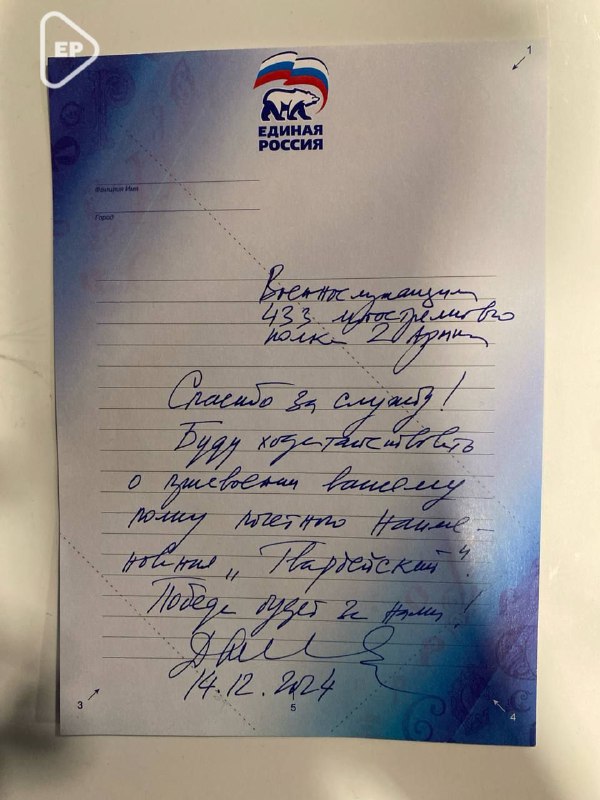 ЕР
1
ЕДИНАЯ
РОССИЯ
Фамилия Имя
Город
Военнослужащим
433 мотострелкового
полка 2 Армии
Спасибо за службу!
Буду ходатайствовать
о присвоении вашему
полку почетного наиме-
нования „Гвардейский".
Победа будет за нами!
14.12.2024
3
5
4